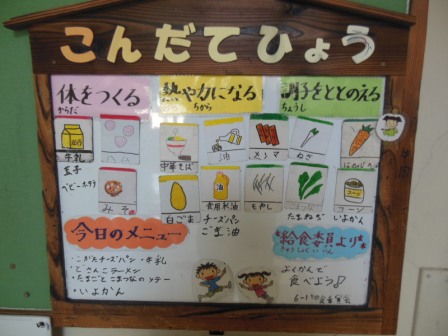 こんだてひょう
体をつくる
からだ
熱や力になる
ちから
調子をととのえる
ちょうし
牛乳
中華そば
油
メンマ
ねぎ
玉子
ベビーホタテ
みそ
白ごま
食用米油
もやし
コーン
チーズパン
ごま油
たまねぎ
いよかん
今日のメニュー
・こがたチーズパン・牛乳
・どさんこラーメン
・たまごとこまつなのソテー
・いよかん
給食委員より
きゅうしょくいいん
よくかんで
食べよう♪